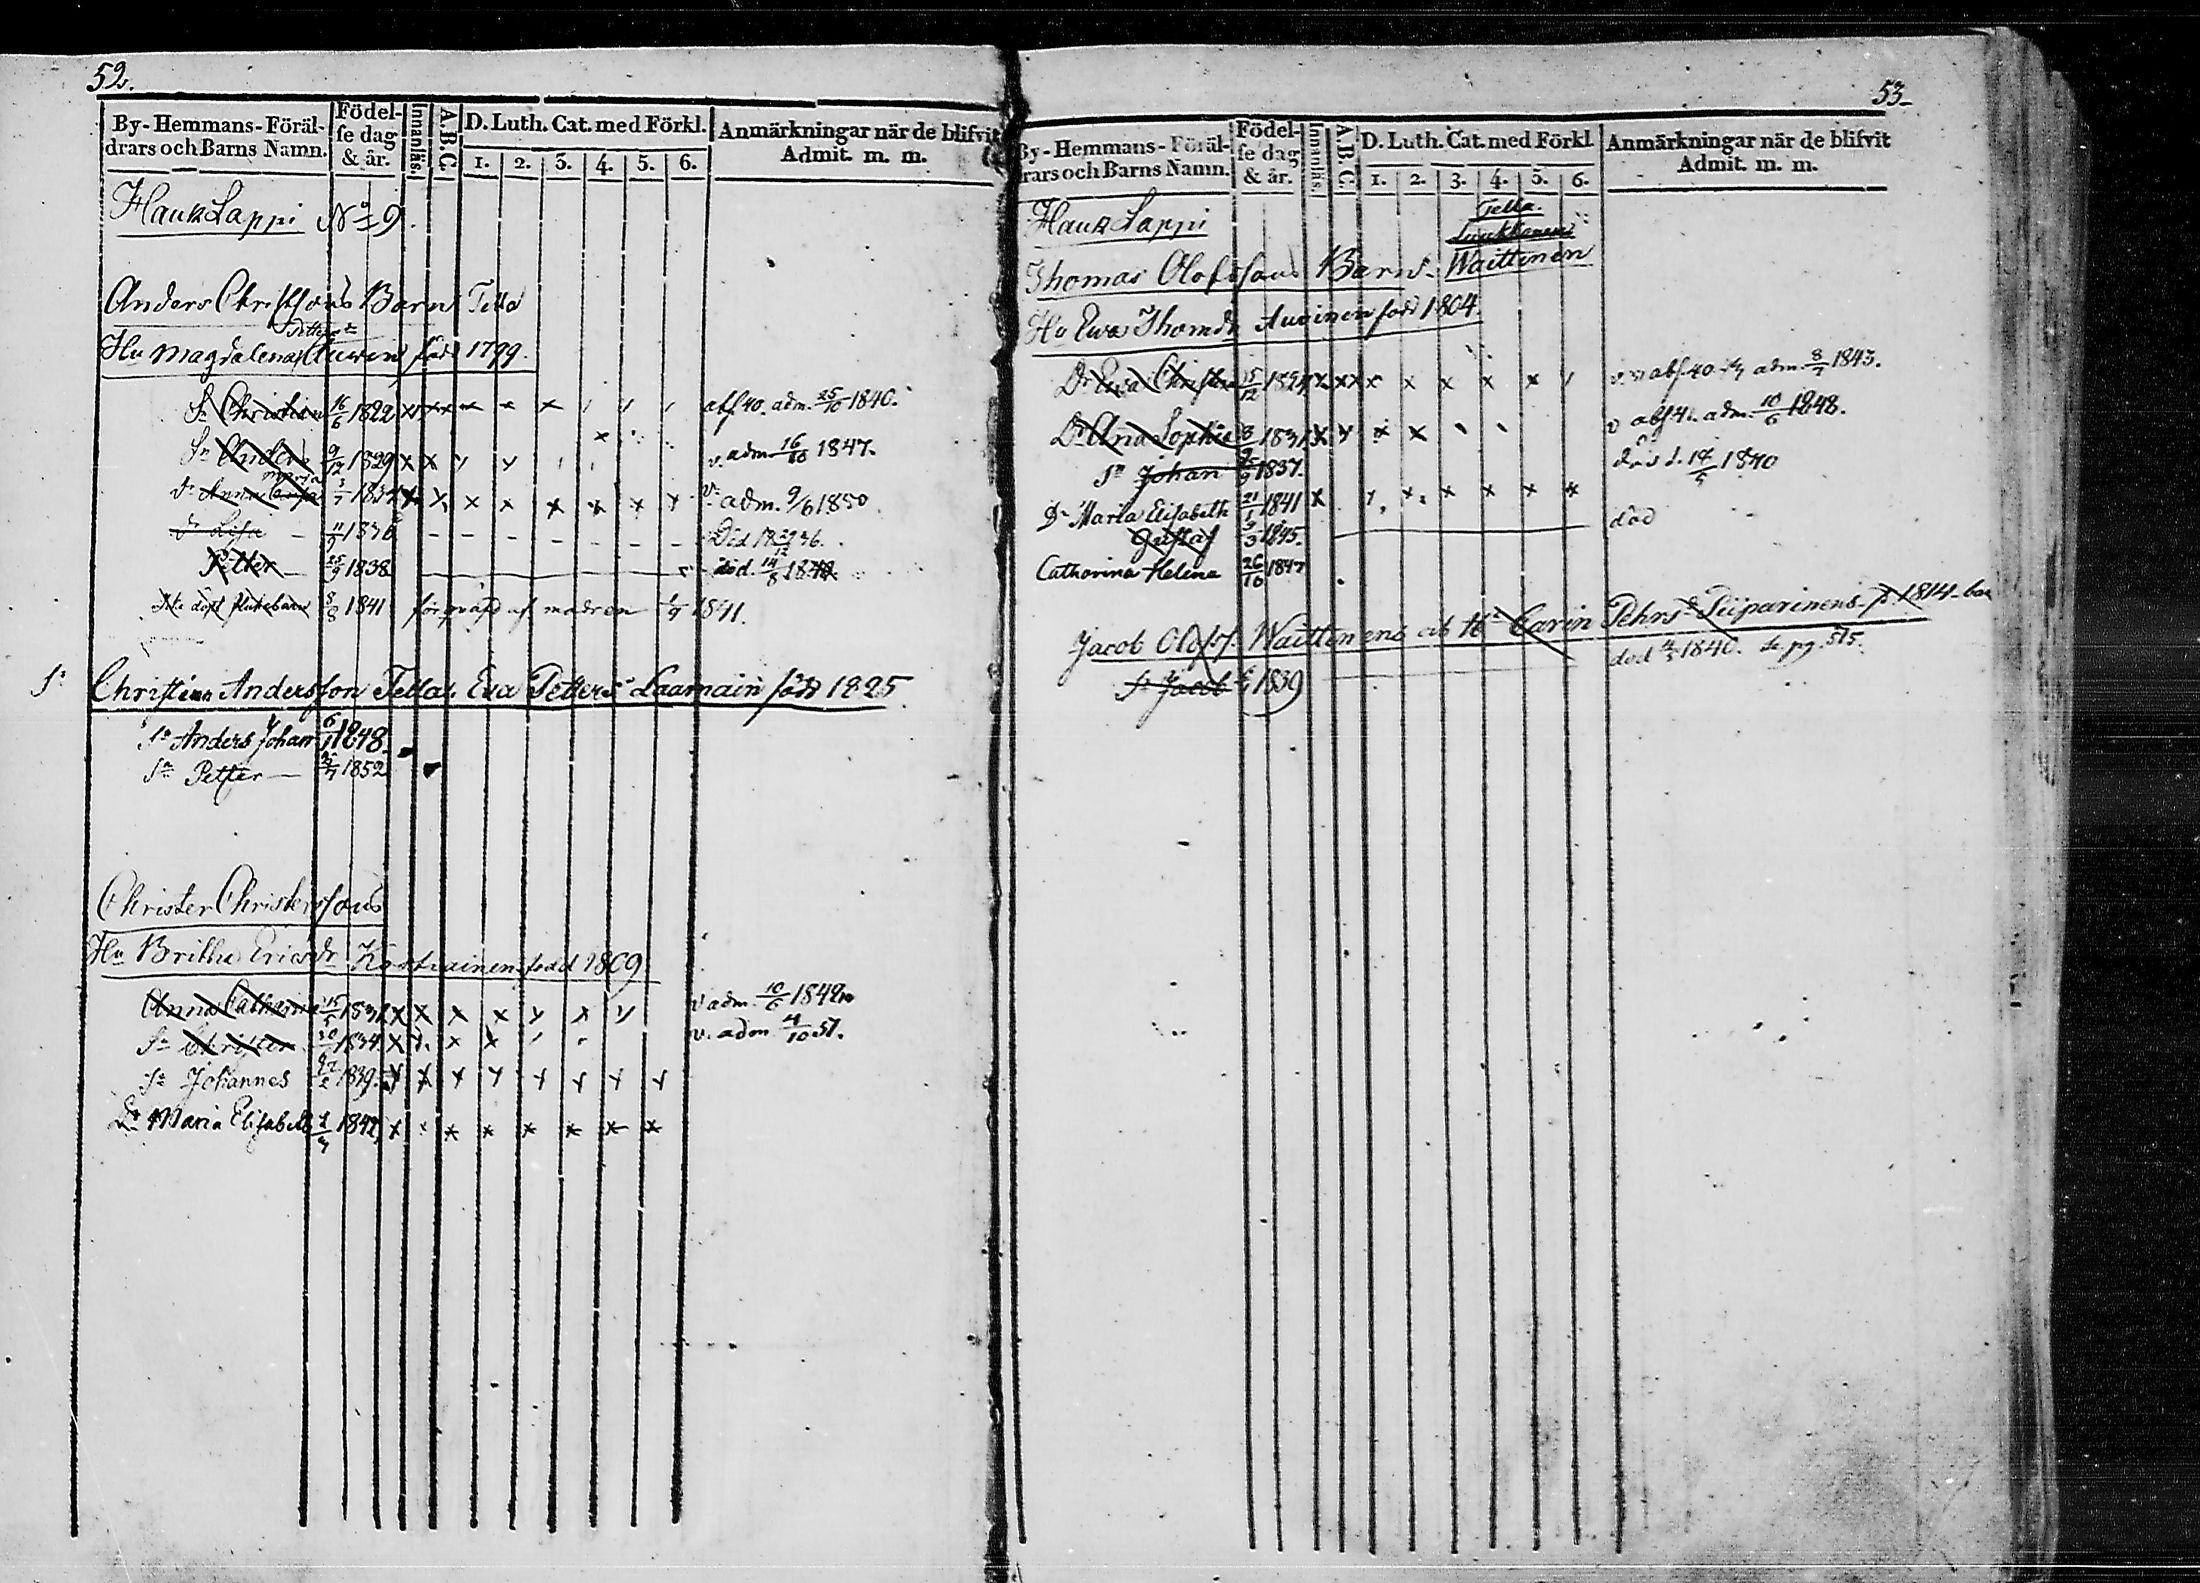 52.
By- Hemmans- Föräl-
drars och Barns Namn.
Födel-
se dag
& år.
Innanläs.
A.B.C.
D. Luth. Cat. med Förkl.
1. 2. 3. 4. 5. 6.
Anmärkningar när de blifvit
Admit. m. m.
Hauk Lappi No 9.
Anders Christsons Barn Tella
Petters dr
Hu Magdalena Auvinen född 1799.
Sn Christian 16/6 1822 x x x x x x x abs. 40. adm. 25/10 1840.
Sn Anders 9/12 1829 x x v. adm. 16/10 1847.
Maria
Dr Anna 3/7 1832 x x x x x x x v. adm. 9/6 1850
Dr Lisa 11/9 1836 - - - - - - - Död 36.
Petter 25/9 1838 död. 14/8
Icke döpt flickebarn 8/8 1841 af modren 1841.
Sn Christian Andersson Tella. Eva Petters dr Laamain född 1825
Sn Anders Johan 6/1 1848.
Sn Petter 1852
Christer Christersons
Hu Britha Ericsdr född 1809
Anna Catharina 15/5 1831 x x x x x x x v adm. 10/6 1849
Sn Christer 20 1834 x x x x v. adm 4/10 51.
Sn Johannes 22/2 1839. x x x x x x x x
Dr Maria Elisabeth 1842 x x x x x x x
53
By- Hemmans- Föräl-
rars och Barns Namn.
Födel-
se dag
& år.
Innanläs.
A.B.C.
D. Luth. Cat. med Förkl.
1. 2. 3. 4. 5. 6.
Anmärkningar när de blifvit
Admit. m. m.
Tella.
Hauk Lappi Luukkonens
Thomas Olofssons Barn. Waittinen
Hu Ewa Thomdr Auvinen född 1804
Dr Ewa Christina 15/12 x x x x x x x x abs. 40 adm. 8/7 1843.
Dr Ana Sophia 8 1831 x x x x v abs. 41. adm. 10/6 1848.
Sn Johan 1837. död d. 1840
Dr Maria Elisabeth 21/1 1841 x x x x x x
Gustaf 9/3 1845. död
Catharina Helena 26/10 1847
Jacob Olofs. Waittinens och Hu Carin Pehrs dr Siiparinens f. 1814 barn
Sn Jacob 1839 död 1840. Se pg. 515.